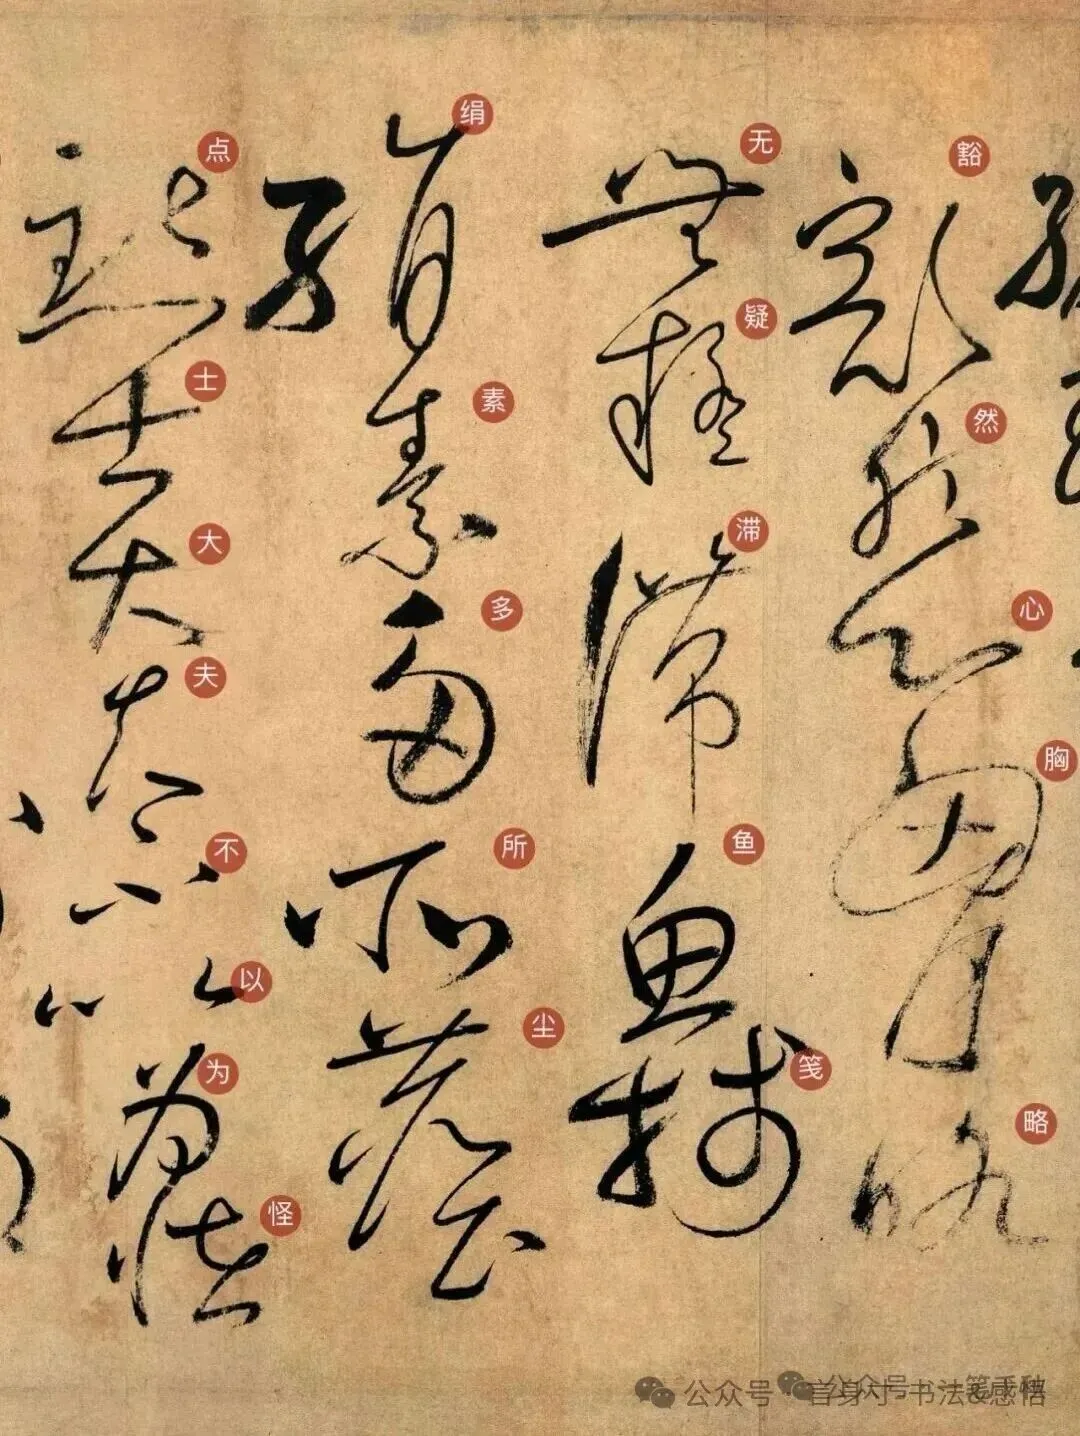 豁然心胸略
无疑滞鱼笺
绢素多所尘
点士大夫不以为怪
公众号
书法&感悟